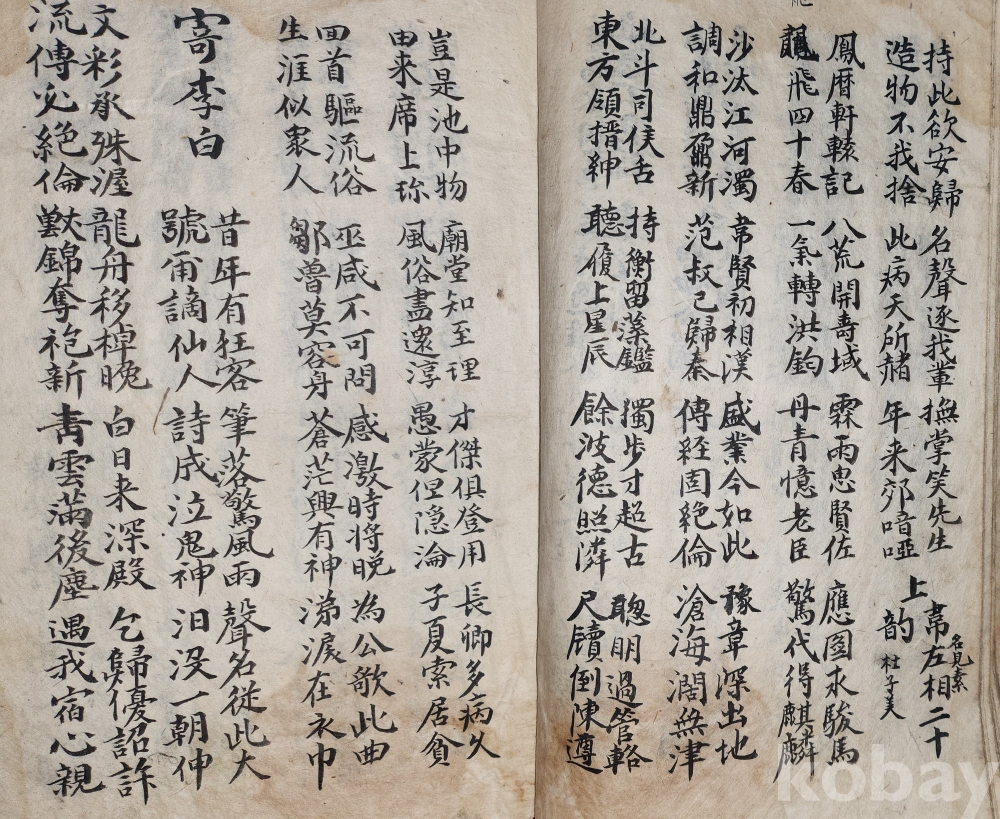 持此欲安歸
造物不我捨
名聲逐我輩
此病天所赭
撫掌笑先生
年来郊喑啞
上韋左相二十韵
名見素
杜子美
鳳曆軒轅記
龍飛四十春
八荒開壽域
一氣轉洪鈞
霖雨思賢佐
丹青憶老臣
應圖求駿馬
驚代得麒麟
沙汰江河濁
調和鼎鼐新
韋賢初相漢
范叔已歸秦
盛業今如此
傳経固絶倫
豫章深出地
滄海濶無津
北斗司侯舌
東方領搢紳
持衡留藻鑑
聽履上星辰
獨步才超古
餘波德照隣
聰明過管輅
尺牘倒陳遵
豈是池中物
由来席上珎
廟堂知至理
風俗盡還淳
才傑俱登用
愚蒙但隐淪
長卿多病久
子夏索居貧
回首驅流俗
生涯似衆人
巫咸不可問
鄒魯莫容身
感激時將晚
蒼茫興有神
為公歌此曲
涕淚在衣巾
寄李白
昔年有狂客
號甫謫仙人
筆落驚風雨
詩成泣鬼神
聲名従此大
汨没一朝伸
文彩承殊渥
流傳必絶倫
龍舟移棹晚
獸錦奪袍新
白日来深殿
青雲滿後塵
乞歸優詔許
遇我宿心親
kobay